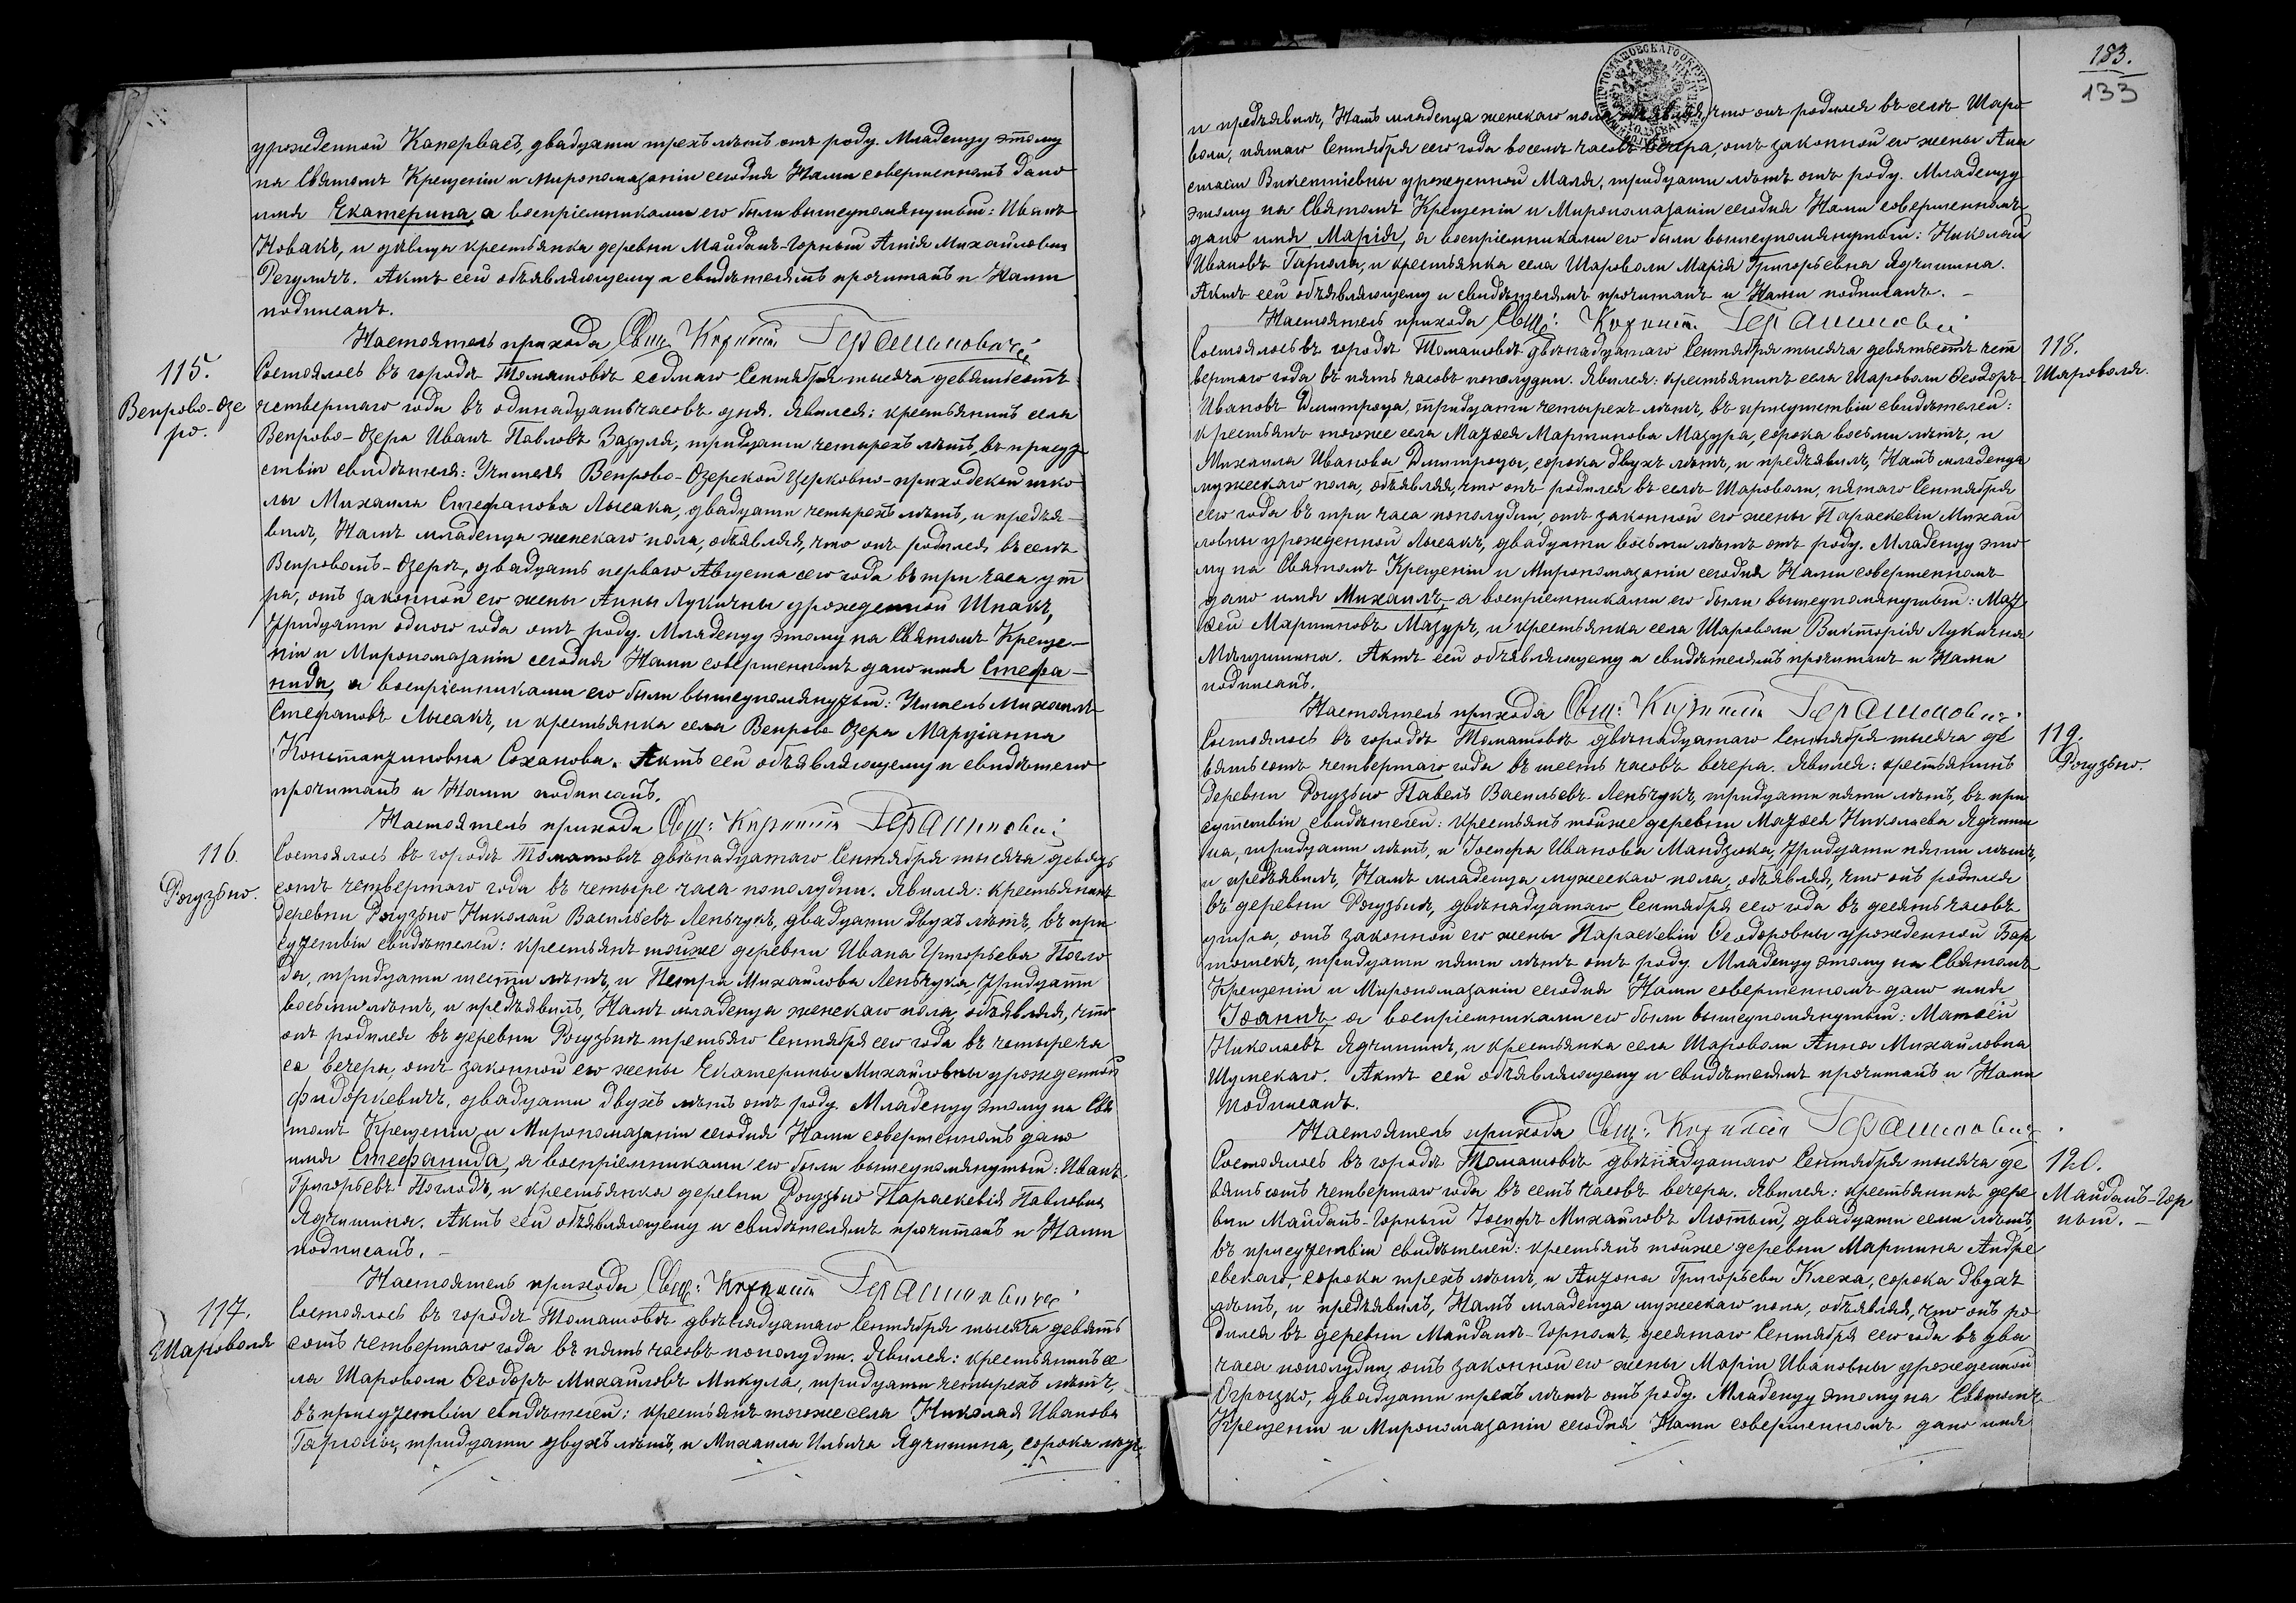 урожденной Капервасъ, двадцати трехъ лѣтъ отъ роду. Младенцу этому
на Святомъ Крещеніи и Миропомазаніи сегодня Нами совершенномъ дано
имя Екатерина, а воспріемниками его были вышеупомянутый: Иванъ
Новакъ, и дѣвица крестьянка деревни Майданъ-Горный Агнія Михайловна
Регуличъ. Актъ сей объявляющему и свидѣтелямъ прочитанъ и Нами
подписанъ.
Настоятель прихода Свящ. Кириллъ Герасимовичъ
115.
Вепрово-Озе
ро.
Состоялось въ городѣ Томашовѣ седмаго Сентября тысяча девятьсотъ
четвертаго года въ одинадцать часовъ дня. Явился: крестьянинъ села
Вепрово-Озера Иванъ Павловъ Зазуля, тридцати четырехъ лѣтъ, въ присут
ствіи свидѣтеля: Учителя Вепрово-Озерской Церковно-приходской шко
лы Михаила Стефанова Лысака, двадцати четырехъ лѣтъ, и предъя-
вилъ, Намъ младенца женскаго пола, объявляя, что онъ родился въ селѣ
Вепровомъ-Озерѣ, двадцать перваго Августа сего года въ три часа ут
ра, отъ законной его жены Анны Лукичны урожденной Шпакъ,
тридцати одного года отъ роду. Младенцу этому на Святомъ Креще-
ніи и Миропомазаніи сегодня Нами совершенномъ дано имя Стефа-
нида, а воспріемниками его были вышеупомянутый: Учитель Михаилъ
Стефановъ Лысакъ, и крестьянка села Вепрово-Озера Маріанна
Константиновна Соханова. Актъ сей объявляющему и свидѣтелю
прочитанъ и Нами подписанъ.
Настоятель прихода Свящ: Кириллъ Герасимовичъ
116.
Рогузьно.
Состоялось въ городѣ Томашовѣ двѣнадцатаго Сентября тысяча девять
сотъ четвертаго года въ четыре часа пополудни. Явился: крестьянинъ
деревни Рогузьно Николай Васильевъ Леньчукъ, двадцати двухъ лѣтъ, въ при
сутствіи свидѣтелей: крестьянъ тойже деревни Ивана Григорьева Погло
да, тридцати шести лѣтъ, и Петра Михайлова Леньчука, тридцати
восьми лѣтъ, и предъявилъ, Намъ младенца женскаго пола, объявляя, что
онъ родился въ деревни Рогузьнѣ третьяго Сентября сего года въ четыре ча
са вечера, отъ законной его жены Екатерины Михайловны урожденной
Фидоркевичъ, двадцати двухъ лѣтъ отъ роду. Младенцу этому на Свя
томъ Крещеніи и Миропомазаніи сегодня Нами совершенномъ дано
имя Стефанида, а воспріемниками его были вышеупомянутый: Иванъ
Григорьевъ Поглодъ, и крестьянка деревни Рогузьно Параскевія Павловна
Ядчишина. Актъ сей объявляющему и свидѣтелямъ прочитанъ и Нами
подписанъ. –
Настоятель прихода Свящ: Кириллъ Герасимовичъ
117.
Шароволя
Состоялось въ городѣ Томашовѣ двѣнадцатаго Сентября тысяча девять
сотъ четвертаго года въ пять часовъ пополудни. Явился: крестьянинъ се
ла Шароволи Ѳеодоръ Михайловъ Микула, тридцати четырехъ лѣтъ,
въ присутствіи свидѣтелей: крестьянъ тогоже села Николая Иванова
Гарголы, тридцати двухъ лѣтъ, и Михаила Ильича Ядчишина, сорока лѣтъ,
183.
133
и предъявилъ, Намъ младенца женскаго пола, объявляя, что онъ родился въ селѣ Шаро
воли, пятаго Сентября сего года восемь часовъ вечера, отъ законной его жены Ана
стасіи Викентіевны урожденной Маля, тридцати лѣтъ отъ роду. Младенцу
этому на Святомъ Крещеніи и Миропомазаніи сегодня Нами совершенномъ
дано имя Марія, а воспріемниками его были вышеупомянутый: Николай
Ивановъ Гаргола, и крестьянка села Шароволи Марія Григорьевна Ядчишина.
Актъ сей объявляющему и свидѣтелямъ прочитанъ и Нами подписанъ. –
Настоятель прихода Свящ: Кириллъ Герасимовичъ
118.
Шароволя.
Состоялось въ городѣ Томашовѣ двѣнадцатаго Сентября тысяча девятьсотъ чет
вертаго года въ пять часовъ пополудни. Явился: крестьянинъ села Шароволи Ѳеодоръ
Ивановъ Дмитроца, тридцати четырехъ лѣтъ, въ присутствіи свидѣтелей:
крестьянъ тогоже села Матѳея Мартинова Мазура, сорока восьми лѣтъ, и
Михаила Иванова Дмитроцы, сорока двухъ лѣтъ, и предъявилъ, Намъ младенца
мужескаго пола, объявляя, что онъ родился въ селѣ Шароволи, пятаго Сентября
сего года въ три часа пополудни, отъ законной его жены Параскевіи Михай
ловны урожденной Лысакъ, двадцати восьми лѣтъ отъ роду. Младенцу это
му на Святомъ Крещеніи и Миропомазаніи сегодня Нами совершенномъ
дано имя Михаилъ, а воспріемниками его были вышеупомянутый: Мат
ѳей Мартиновъ Мазуръ, и крестьянка села Шароволи Викторія Лукична
Мазуришина. Актъ сей объявляющему и свидѣтелямъ прочитанъ и Нами
подписанъ.
Настоятель прихода Свящ: Кириллъ Герасимовичъ
119.
Рогузьно.
Состоялось въ городѣ Томашовѣ двѣнадцатаго Сентября тысяча де
вятьсотъ четвертаго года въ шесть часовъ вечера. Явился: крестьянинъ
деревни Рогузьно Павелъ Васильевъ Леньчукъ, тридцати пяти лѣтъ, въ при
сутствіи свидѣтелей: крестьянъ тойже деревни Матѳея Николаева Ядчиши
на, тридцати лѣтъ, и Іосифа Иванова Мандзюка, тридцати пяти лѣтъ,
и предъявилъ, Намъ младенца мужескаго пола, объявляя, что онъ родился
въ деревни Рогузьнѣ, двѣнадцатаго Сентября сего года въ десять часовъ
утра, отъ законной его жены Параскевіи Ѳеодоровны урожденной Бар
тошекъ, тридцати пяти лѣтъ отъ роду. Младенцу этому на Святомъ
Крещеніи и Миропомазаніи сегодня Нами совершенномъ дано имя
Іоаннъ, а воспріемниками его были вышеупомянутый: Матѳей
Николаевъ Ядчишинъ, и крестьянка села Шароволи Анна Михайловна
Шумскаго. Актъ сей объявляющему и свидѣтелямъ прочитанъ и Нами
подписанъ.
Настоятель прихода Свящ: Кириллъ Герасимовичъ
120.
Майданъ-Гор
ный. –
Состоялось въ городѣ Томашовѣ двѣнадцатаго Сентября тысяча де
вятьсотъ четвертаго года въ семь часовъ вечера. Явился: крестьянинъ дере
вни Майданъ-Горный Іосифъ Михайловъ Лютый, двадцати семи лѣтъ,
въ присутствіи свидѣтелей: крестьянъ тойже деревни Мартина Андре
евскаго, сорока трехъ лѣтъ, и Антона Григорьева Клеха, сорока двухъ
лѣтъ, и предъявилъ, Намъ младенца мужескаго пола, объявляя, что онъ ро
дился въ деревни Майданѣ-Горномъ, десятаго Сентября сего года въ два
часа пополудни, отъ законной его жены Маріи Ивановны урожденной
Огрызко, двадцати трехъ лѣтъ отъ роду. Младенцу этому на Святомъ
Крещеніи и Миропомазаніи сегодня Нами совершенномъ дано имя